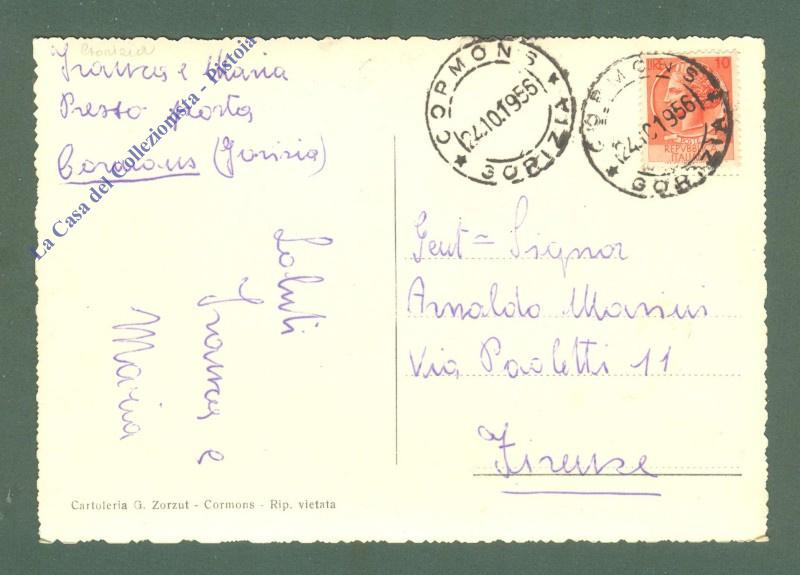 Franca e Maria
Presso Posta
Cormons (Gorizia)
La Casa del Collezionista - Pistoia
CORMONS
24.10.1956
* GORIZIA *
CORMONS
24.10.1956
* GORIZIA
LIRE 10
REPVBBLICA
ITALIANA
Saluti
Franca e
Maria
Gent= Signor
Arnaldo Massini
Via Paoletti 11
Firenze
Cartoleria G. Zorzut - Cormons - Rip. vietata